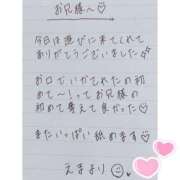 お兄様へ♡
今日は遊びに来てくれて
ありがとうございました
お口でいかてれたの初
めて〜！ってお兄様
の初めて奪えて良かった♡
またいっぱい舐めます♡
えまより